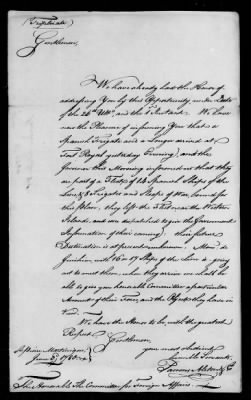 (Triplicate)
Gentlemen,
We have already had the Honor of
addressing You by this Opportunity under Date
of the 26th Ulto. and the Instant. We have
now the Pleasure of informing You that a
Spanish Frigate and a Longer arrived at
Fort Royal yesterday Evening, and the
Governor this Morning informs us that they
are part of a Fleet of 14 Spanish Ships of the
Line, & Frigates and Sloops of War, bound for
this place, they left the Fleet near the Western
Islands, and are dispatched to give the Government
Information of their coming, their future
Destination is at present unknown. Monsr. de
Guichen, with 16 or 17 Ships of the Line is going
out to meet them, when they arrive we shall be
able to give your honorable Committee a particular
Account of their Force, and the Object they have in
View.
We have the Honor to be, with the greatest
Respect
Gentlemen,
St. Pierre Martinique
June 1780
your most obedient
humble Servants
The Honorable The Committee for Foreign Affairs